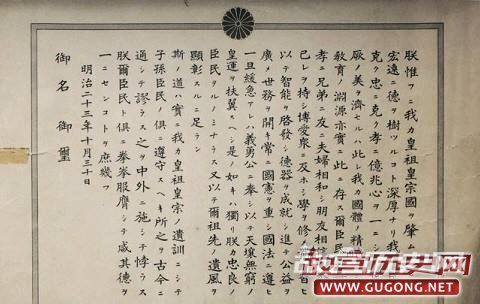 朕惟フニ我カ皇祖皇宗國ヲ肇ム
宏遠ニ德ヲ樹ツルコト深厚ナリ我
克ク忠ニ克ク孝ニ億兆心ヲ一ニシ
厥ノ美ヲ濟セルハ此レ我カ國體ノ精
教育ノ淵源亦實ニ此ニ存ス爾臣民
孝ニ兄弟ニ友ニ夫婦相和シ朋友相信
己レヲ持シ博愛衆ニ及ホシ學ヲ修 習ヒ
以テ智能ヲ啓發シ德器ヲ成就シ進テ公益ヲ
廣メ世務ヲ開キ常ニ國憲ヲ重シ國法ニ遵ヒ
一旦緩急アレハ義勇公ニ奉シ以テ天壤無窮ノ
皇運ヲ扶翼スヘシ是ノ如キハ獨リ朕カ忠良ノ
臣民タルノミナラス又以テ爾祖先ノ遺風ヲ
顯彰スルニ足ラン
斯ノ道ハ實ニ我カ皇祖皇宗ノ遺訓ニシテ
子孫臣民ノ俱ニ遵守スヘキ所之ヲ古今ニ
通シテ謬ラス之ヲ中外ニ施シテ悖ラス
朕爾臣民ト俱ニ拳拳服膺シテ咸其德ヲ
一ニセンコトヲ庶幾フ
明治二十三年十月三十日
御名御璽
故宫历史网
WWW.GUGONG.NET